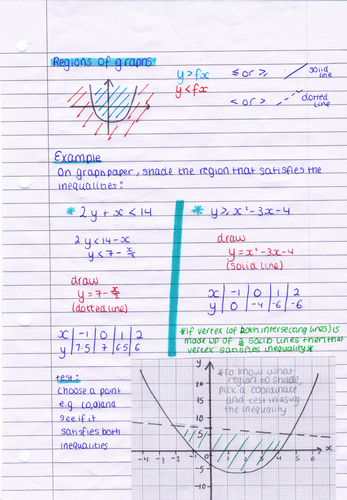 Regions of graphs
y > fx
≤ or ≥
solid line
y < fx
< or >
dotted line
Example
On graph paper, shade the region that satisfies the
inequalities:
* 2y + x < 14
2y < 14 - x
y < 7 - x/2
draw
y = 7 - x/2
(dotted line)
x | -1 | 0 | 1 | 2
y | 7.5 | 7 | 6.5 | 6
* y ≥ x² - 3x - 4
draw
y = x² - 3x - 4
(solid line)
x | -1 | 0 | 1 | 2
y | 0 | -4 | -6 | -6
*If vertex (of both intersecting lines) is
made up of 2 solid lines then that
vertex satisfies inequality*
test:
choose a point
e.g. (0,0) and
see if it
satisfies both
inequalities
*To know what
region to shade,
pick a coordinate
and test in using
the inequality
y
5
-5
-10
-4 -3 -2 -1 1 2 3 4 5 6
x